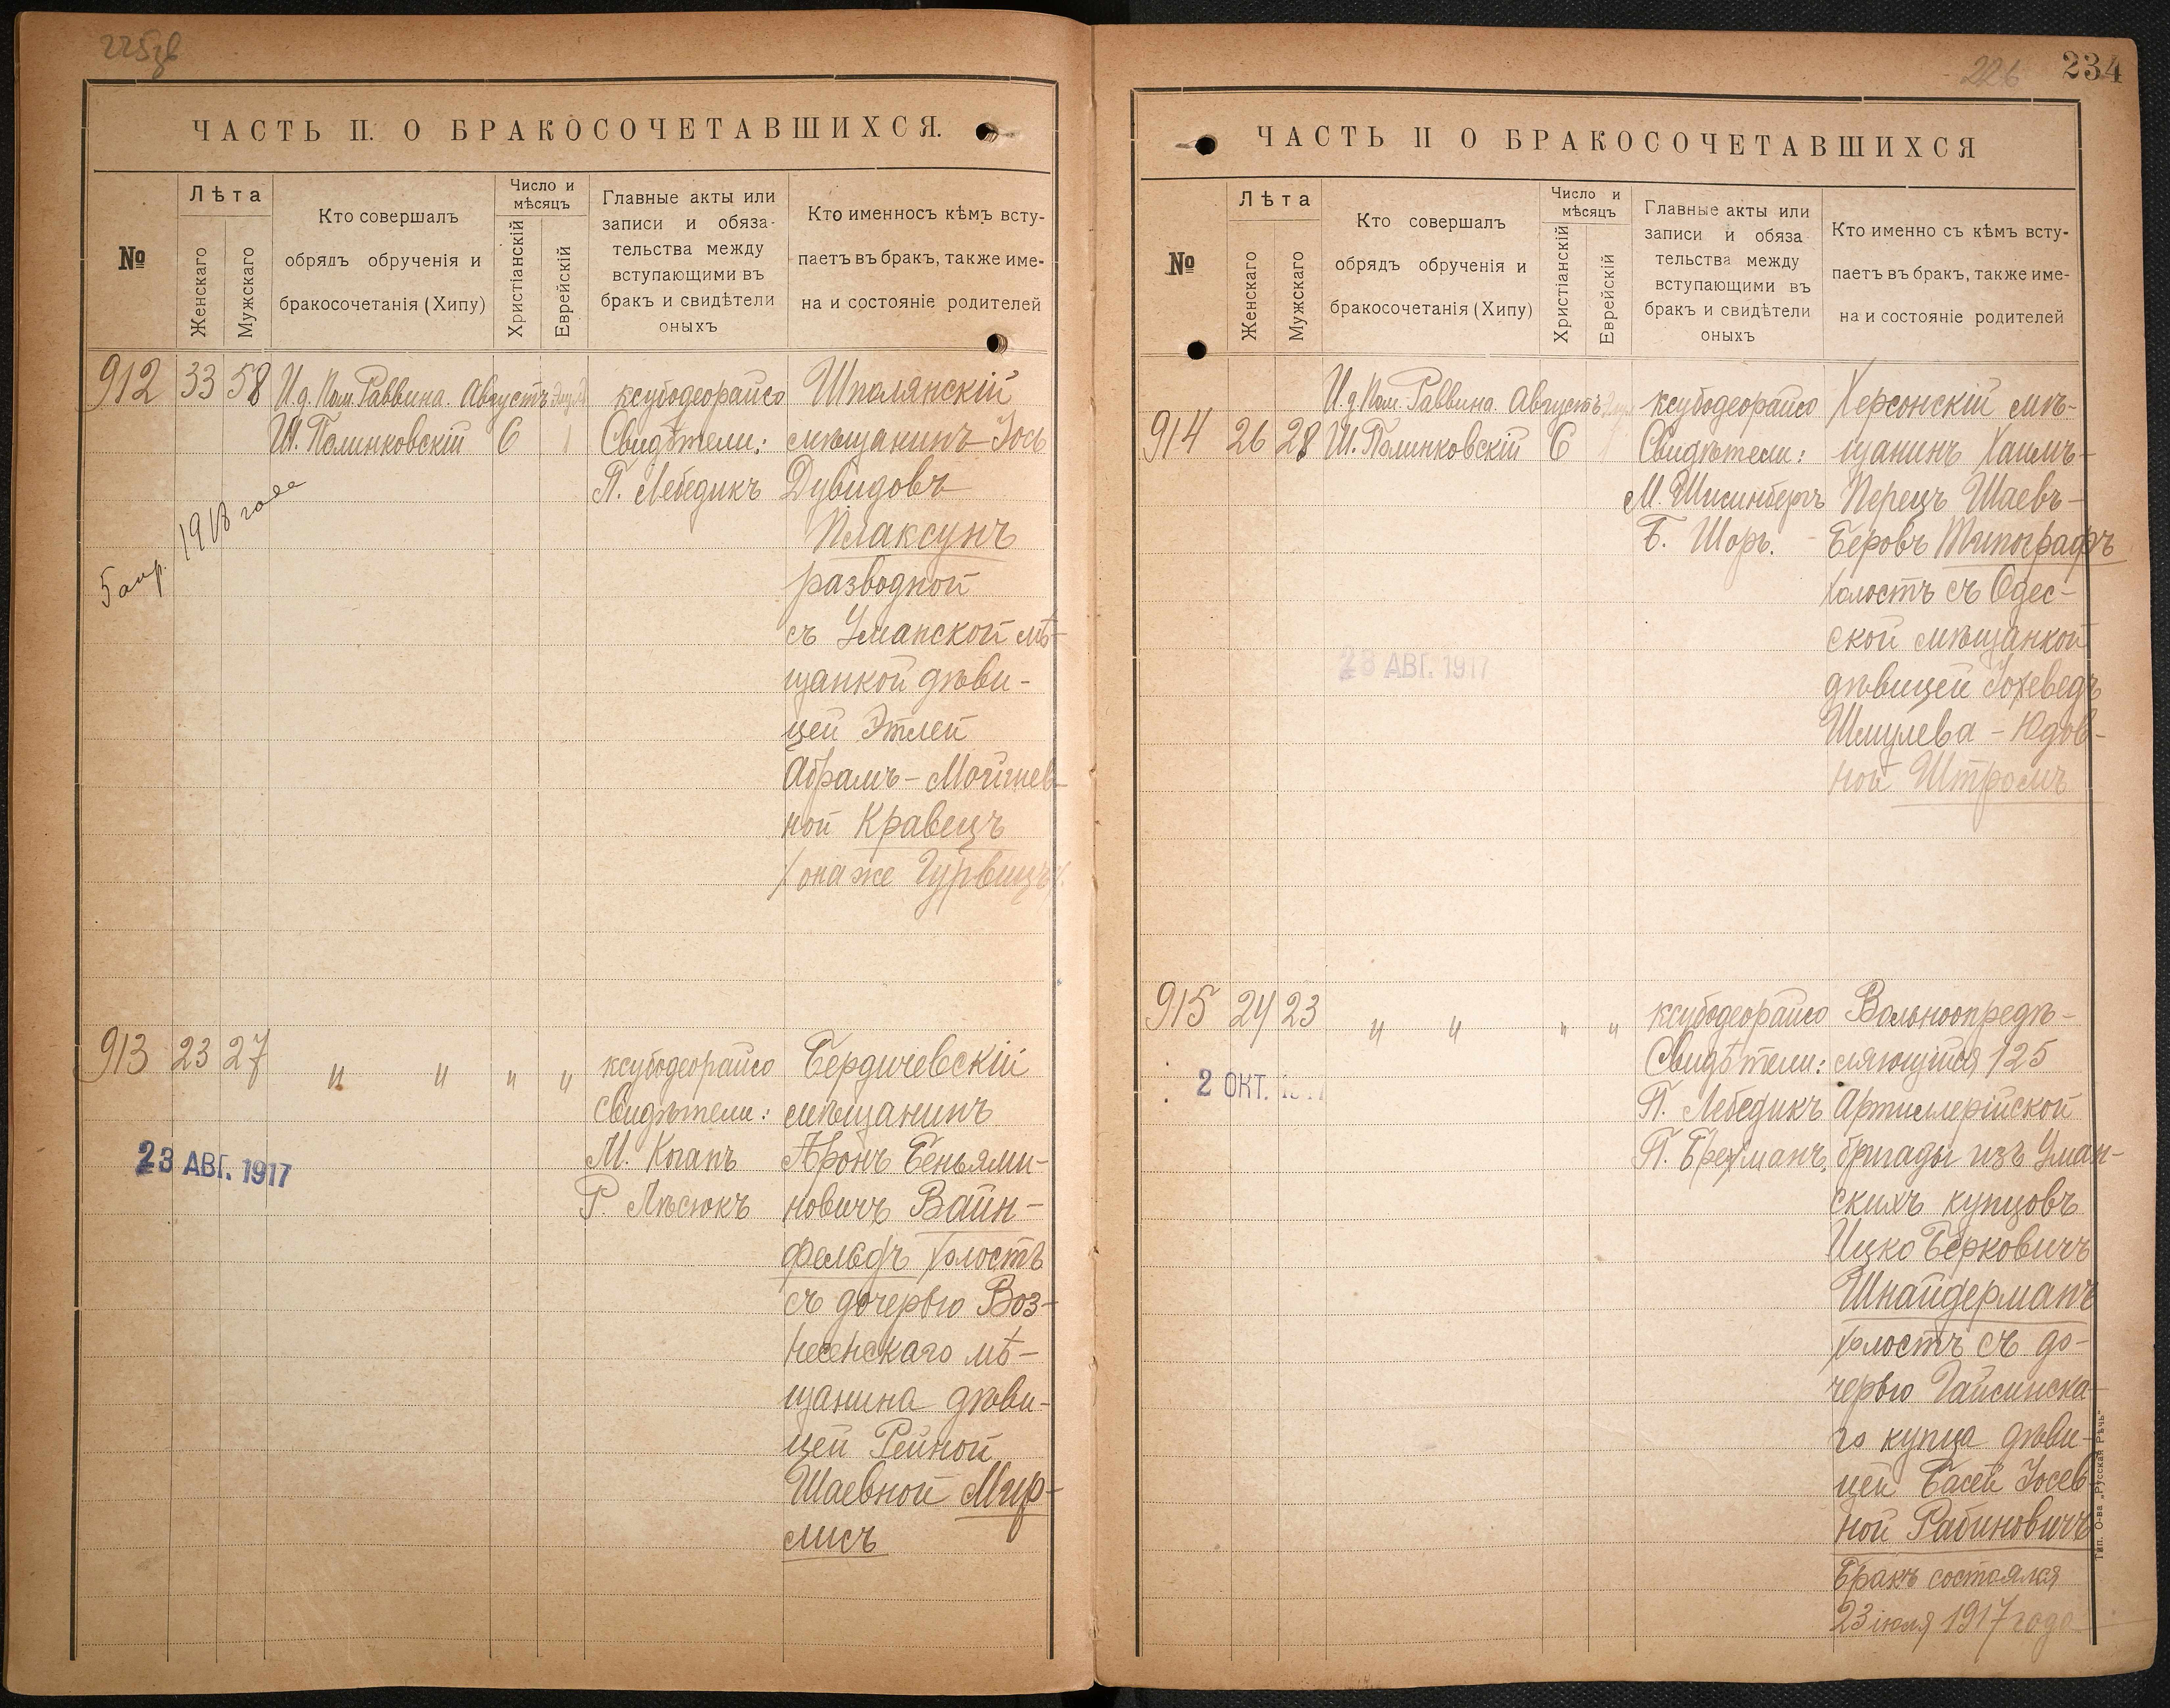 225зв
ЧАСТЬ II. О БРАКОСОЧЕТАВШИХСЯ.
№
Лѣта
Женскаго
Мужскаго
Кто совершалъ
обрядъ обрученія и
бракосочетанія (Хипу)
Число и
мѣсяцъ
Христіанскій
Еврейскій
Главные акты или
записи и обяза-
тельства между
вступающими въ
бракъ и свидѣтели
оныхъ
Кто именносъ кѣмъ всту-
паетъ въ бракъ, также име-
на и состояніе родителей
912 33 58
И.д. Пом. Раввина.
Ш. Полинковскій
Августъ
6
ксубодеорайсо
Свидѣтели:
П. Лебедикъ
Шполянскій
мѣщанинъ Іось
Дувидовъ
Плаксунъ
разводной
съ Уманской мѣ-
щанкой дѣви-
цей Этлей
Абрамъ-Мойшев-
ной Кравецъ
/она же Гурвицъ/
5 апр. 1918 года
913 23 27 " " " "
ксубодеорайсо
Свидѣтели:
М. Коганъ
Р. Лѣсюкъ
Бердичевскій
мѣщанинъ
Аронъ Беньями-
новичъ Вайн-
фельдъ холостъ
съ дочерью Воз-
несенскаго мѣ-
щанина дѣви-
цей Рейной
Шаевной Мир-
лисъ
23 АВГ. 1917
226
234
ЧАСТЬ II О БРАКОСОЧЕТАВШИХСЯ
№
Лѣта
Женскаго
Мужскаго
Кто совершалъ
обрядъ обрученія и
бракосочетанія (Хипу)
Число и
мѣсяцъ
Христіанскій
Еврейскій
Главные акты или
записи и обяза
тельства между
вступающими въ
бракъ и свидѣтели
оныхъ
Кто именно съ кѣмъ всту-
паетъ въ бракъ, также име-
на и состояніе родителей
914 26 28
И.д. Пом. Раввина.
Ш. Полинковскій
Августъ
6
ксубодеорайсо
Свидѣтели:
М. Шисинбергъ
Б. Шоръ.
Херсонскій мѣ-
щанинъ Хаимъ-
Перецъ Шаевъ-
Беровъ Типографъ
холостъ съ Одес-
ской мѣщанкой
дѣвицей Іохеведъ
Шмулева-Юдов-
ной Штромъ
23 АВГ. 1917
915 24 23 " " " "
ксубодеорайсо
Свидѣтели:
П. Лебедикъ
П. Брехманъ.
Вольноопредѣ-
ляющійся 125
Артиллерійской
бригады изъ Уман-
скихъ купцовъ
Ицко Берковичъ
Шнайдерманъ
холостъ съ до-
черью Гайсинска-
го купца дѣви-
цей Басей Іосев-
ной Рабиновичъ
Бракъ состоялся
23 іюля 1917 года
2 ОКТ. 1917
Тип. О-ва „Русская Рѣчь"